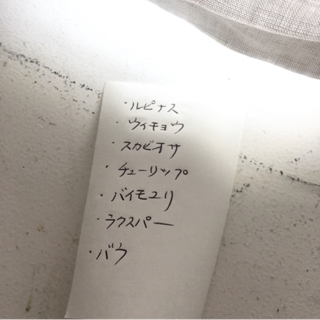 ・ルピナス
・ウイキョウ
・スカビオサ
・チューリップ
・バイモユリ
・ラクスパー
・バラ